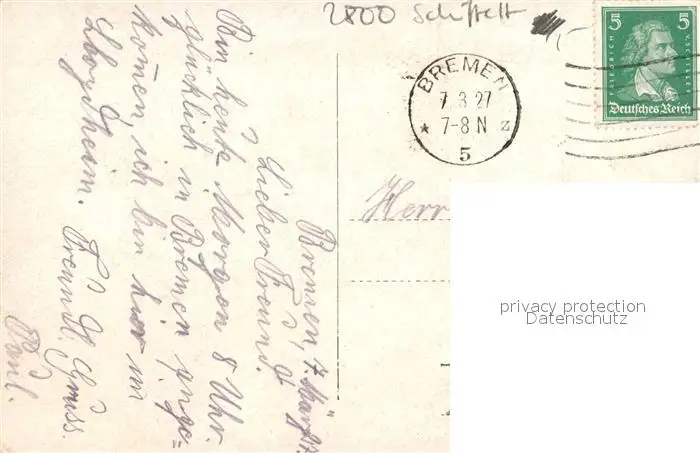 2800 Schiffahrt
5 5
FRIEDRICH
Deutsches Reich
BREMEN
7.3.27
* 7-8 N z
5
Herr
privacy protection
Datenschutz
Bremen, 7. März 27.
Lieber Freund.
Bin heute Morgen 8 Uhr
glücklich in Bremen ange=
komen, ich bin hier im
Lloydheim. Freundl. Gruss.
Paul.